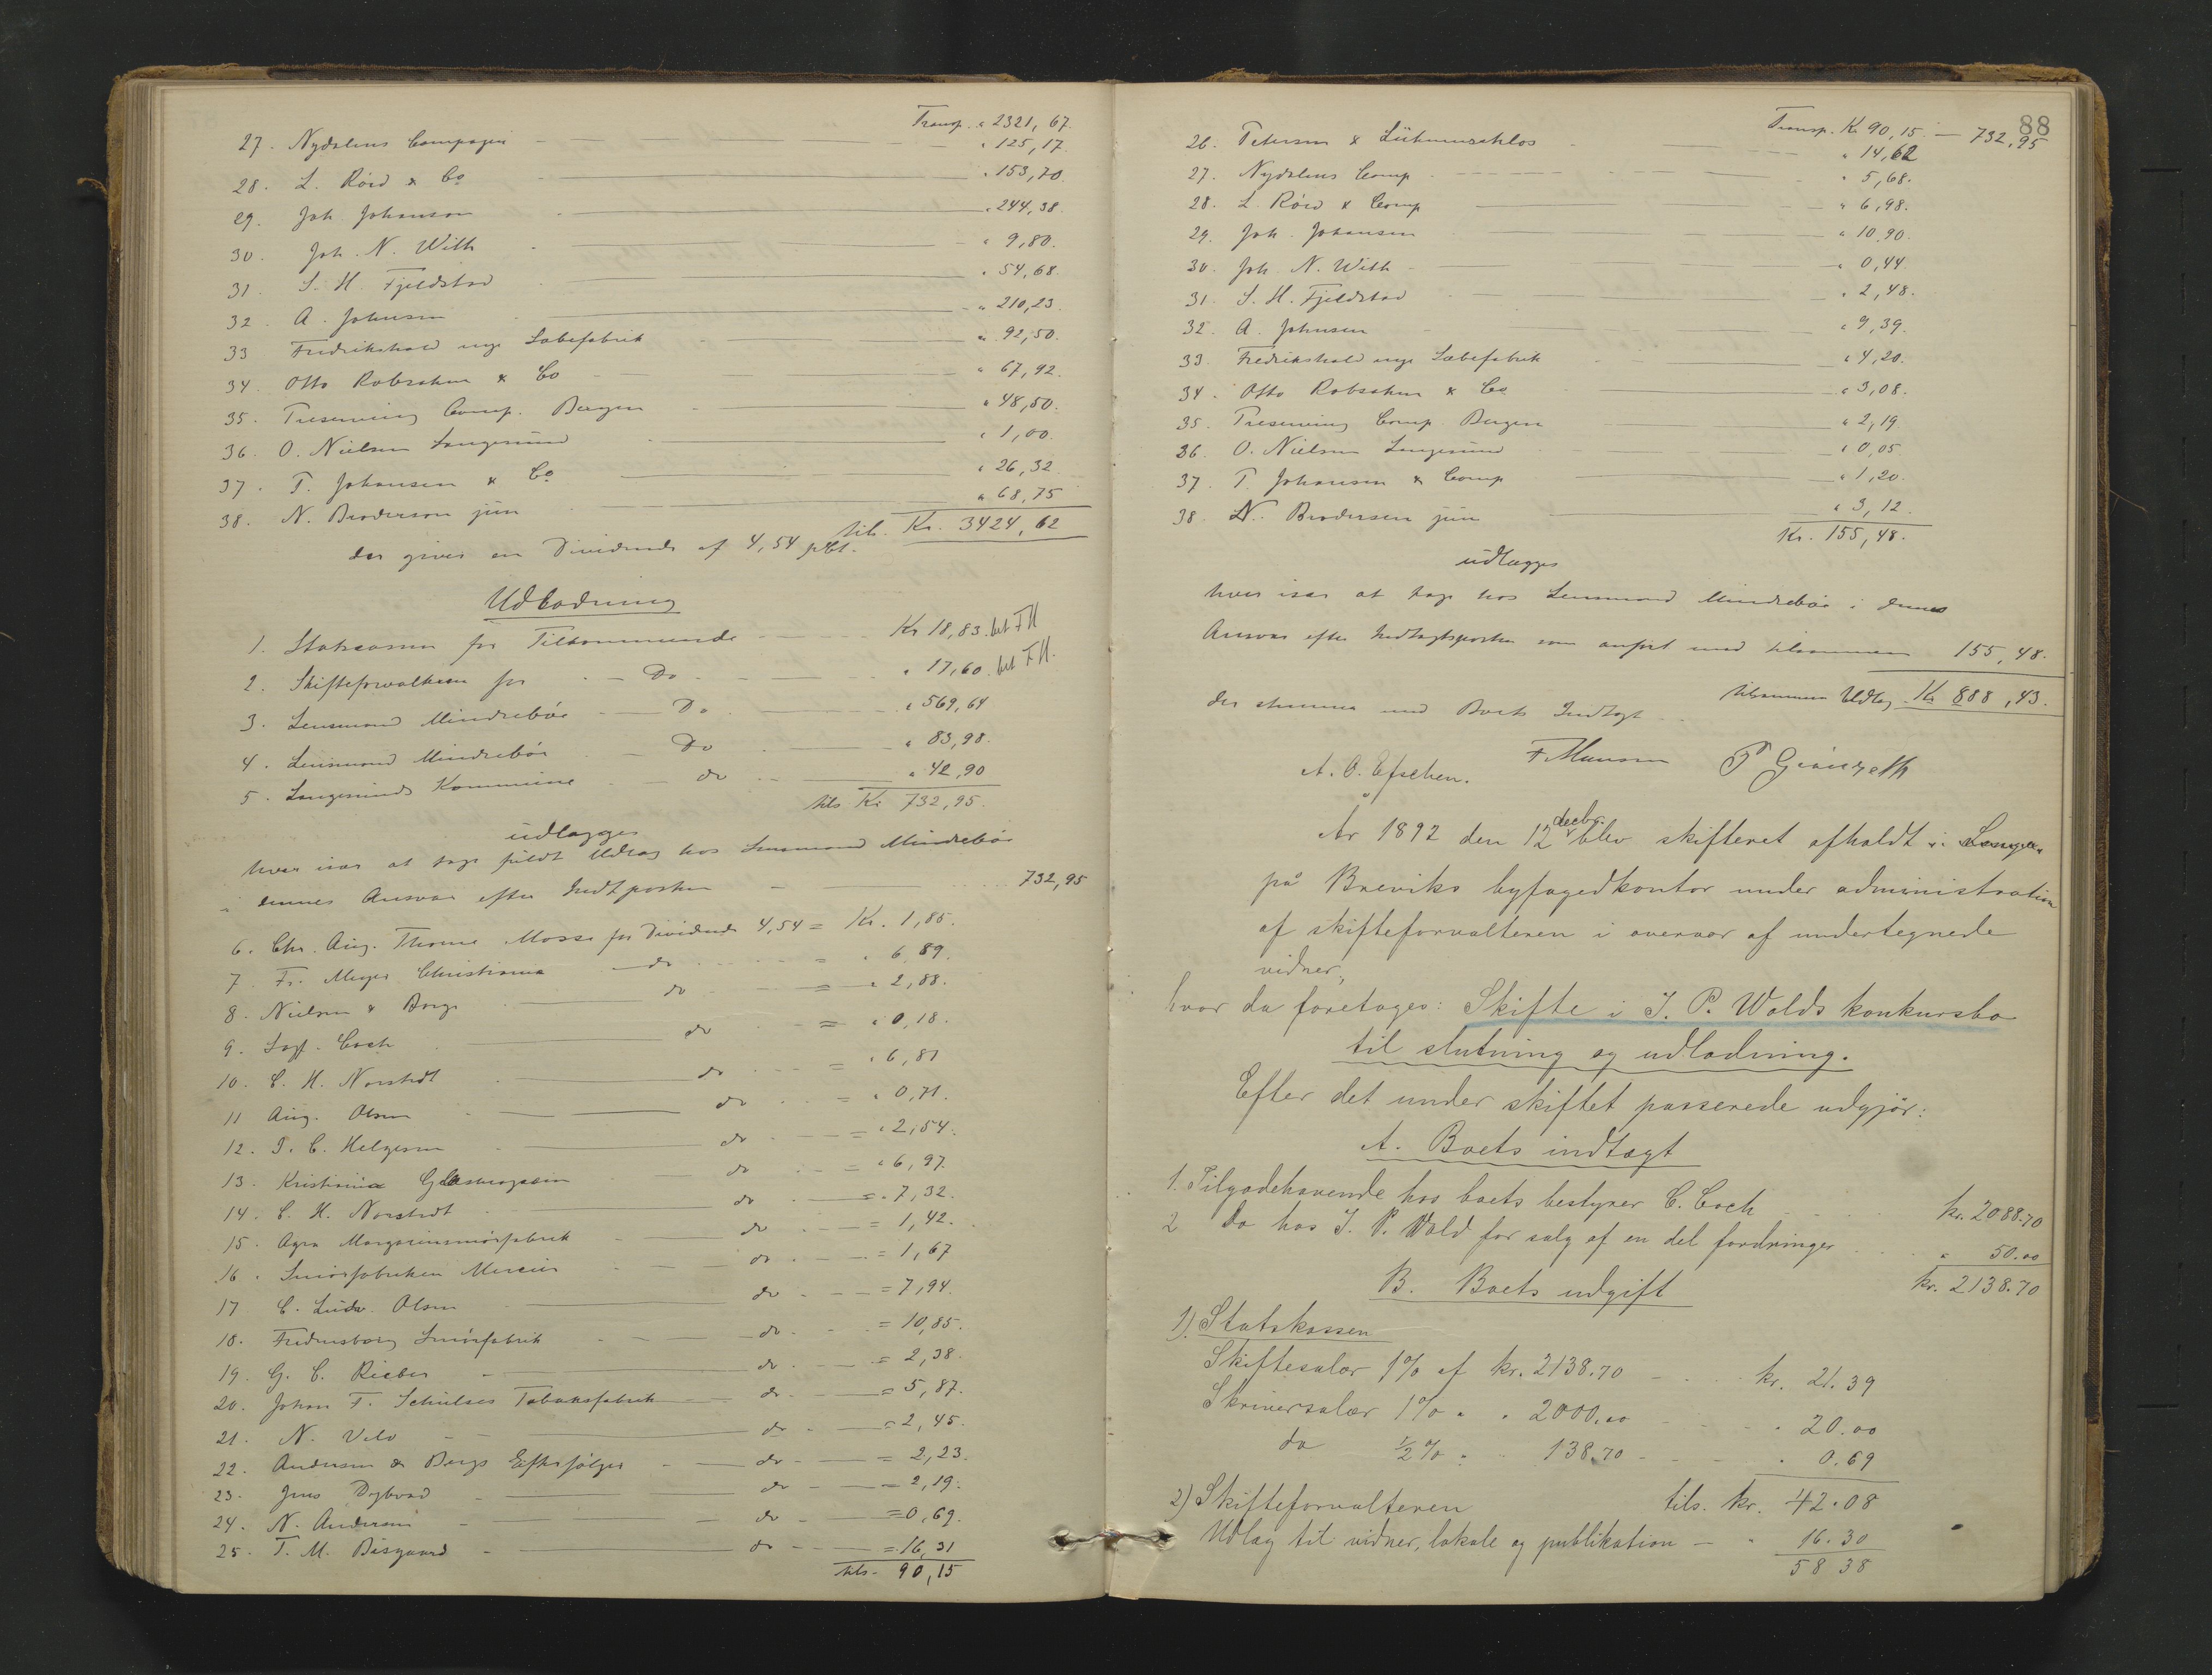 Transp. " 2321,67.
27. Nydalens Compagni " 125,17.
28. L. Röed & Co " 153,70.
29. Joh. Johanson " 244,38.
30. Joh. N. With " 9,80.
31. S. H. Fjeldstad " 54,68.
32. A. Johnsen " 210,23.
33 Fredrikshald nye Sæbefabrik " 92,50.
34. Otto Robsahm & Co " 67,92.
35. Preserving Comp. Bergen " 48,50.
36. O. Nielsen Langesund " 1,00.
37. T. Johansen & Co " 26,32
38. N. Broderson jun " 68,75
tils. Kr. 3424,62
der giver en Dividende af 4,54 pCt.
Udlodning
1. Statscassen for Tilkommende Kr 18,83. bet FH
2. Skifteforvalteren for - Do " 17,60. bet FH.
3. Lensmand Mindrebóe - Do " 569,64
4. Lensmand Mindrebóe - Do " 83,98.
5. Langesunds Kommune do " 42,90
tils Kr 732,95.
udlægges
hver især at tage fuldt Udlæg hos Lensmand Mindrebóe
i dennes Ansvar efter Indtposten 732,95
6. Chr. Aug. Thorne Moss for Dividende 4,54 = Kr. 1,85.
7. Fr. Meyer Christiania do = " 6,89.
8. Nielsen & Borge do = " 2,88.
9. Sagf. Coch do = " 0,18.
10. C. H. Norstedt do = " 6,81
11 Aug. Olsen do = " 0,71.
12. P. C. Helgesen do = " 2,54.
13. Kristiania Glasmagasin do = " 6,97.
14. C. H. Norstedt do = " 7,32.
15. Agra Margarinsmörfabrik do = 1,42.
16. Smörfabriken Mercur do = 1,67
17 C. Ludv. Olsen do = 7,94.
18. Fredensborg Smörfabrik do = 10,85.
19. G. C. Rieber do = 2,38.
20. Johan F. Schulzes Tobaksfabrik do = 5,87.
21. N. Vels do = 2,45.
22. Andersen & Bergs Efterfölger do = 2,23.
23. Jens Dybvad do = 2,19.
24. N. Andersen do = 0,69.
25. T. M. Bisgaard do = 16,31
tils. 90,15
88
Transp. Kr 90,15. — 732,95
26. Petersen & " 14,62
27. Nydalens Comp " 5,68.
28. L. Röed & Comp " 6,98.
29. Joh. Johansen " 10,90.
30. Joh. N. With " 0,44.
31. S. H. Fjeldstad " 2,48.
32. A. Johnsen " 9,39.
33. Fredrikshald nye Sæbefabrik " 4,20.
34. Otto Robsahm & Co " 3,08.
35. Preserving Comp. Bergen " 2,19
36. O. Nielsen Langesund " 0,05
37. T. Johansen & Comp " 1,20.
38. N. Brodersen jun " 3,12.
Kr. 155,48.
udlægges
hver især at tage hos Lensmand Mindrebóe i dennes
Ansvar efter Indtægtsposten som anfört med tilsammen 155,48.
tilsammen Udlæg Kr 888,43.
der stemmer med Boets Indtægt.
A. O. Efschen. F. Hansen P
År 1892 den 12 decbr. blev skifteret afholdt i Lange
på Breviks byfogedkontor under administration
af skifteforvalteren i overvær af undertegnede
vidner,
hvor da foretoges: Skifte i J. P. Wolds konkursbo
til slutning og udlodning.
Efter det under skiftet passerede udgjør:
A. Boets indtægt
1. Tilgodehavende hos boets bestyrer C. Coch kr. 2088.70
2 Do hos J. P. Wold for salg af en del fordringer " 50.00
kr. 2138.70
B. Boets udgift
1). Statskassen
Skiftesalær 1% af kr. 2138.70 kr. 21.39
Skriversalær 1% " " 2000.00 " 20.00
do ½% " " 138.70 " 0.69
tils. kr. 42.08
2) Skifteforvalteren
Udlæg til vidner, lokale og publikation — " 16.30
58 38